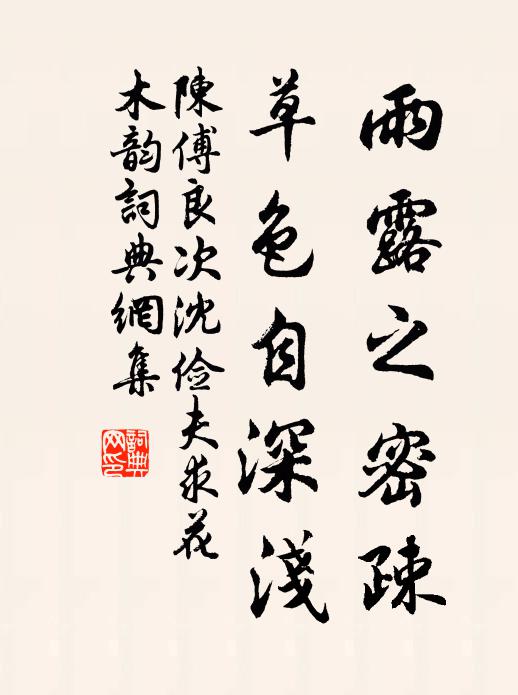 雨露之密疎
草色自深淺
陳傅良次沈儉夫求花
木韵詞典網集
詞典
网印